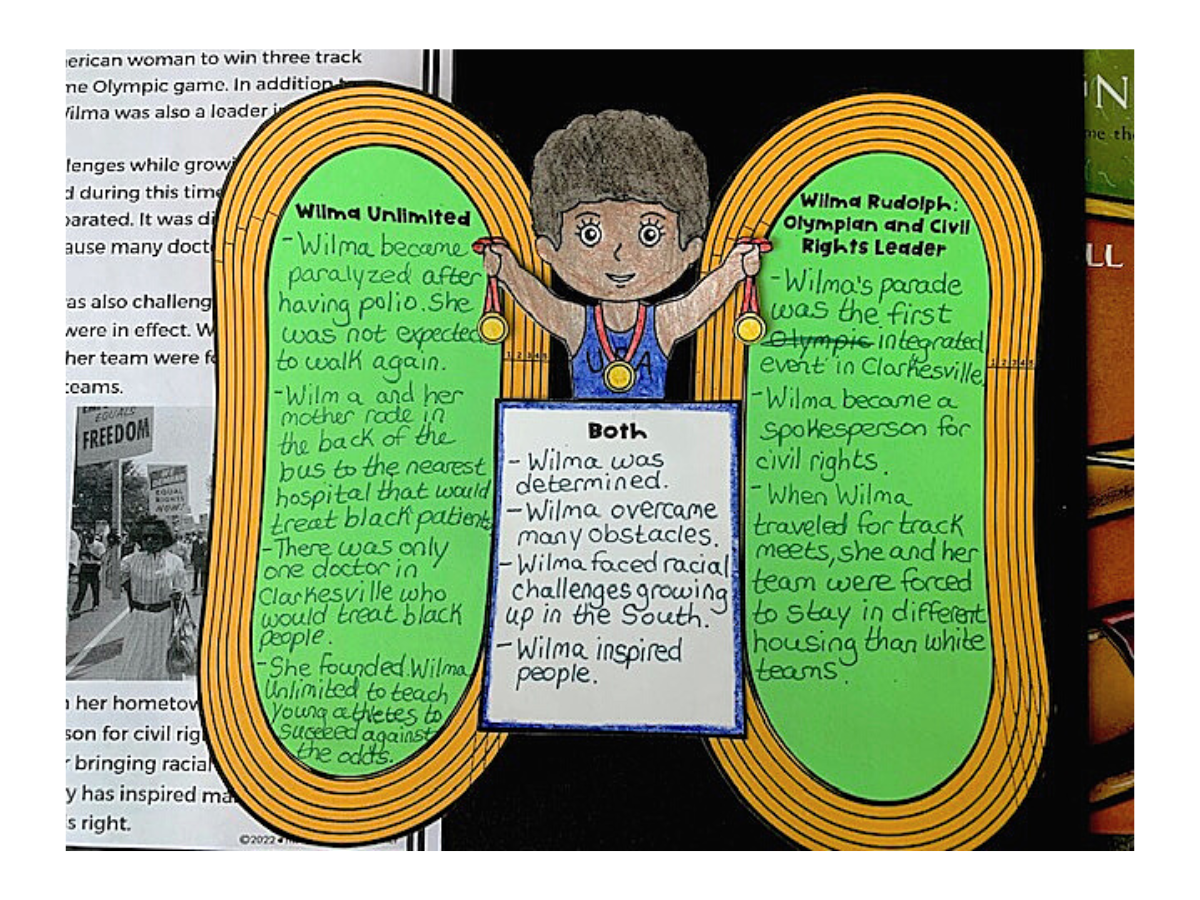 erican woman to win three track
me Olympic game. In addition
Wilma was also a leader
lenges while grow
d during this time
parated. It was di
ause many doct
as also challeng
were in effect. W
her team were fo
teams.
EQUALS
FREEDOM
DEMAND
EQUAL
RIGHTS
NOW!
n her hometow
son for civil rig
r bringing racial
y has inspired ma
s right.
©2022
Wilma Unlimited
-Wilma became
paralyzed after
having polio. She
was not expected
to walk again.
-Wilma and her
mother rode in
the back of the
bus to the nearest
hospital that would
treat black patients
-There was only
one doctor in
Clarkesville who
would treat black
people.
-She founded Wilma
Unlimited to teach
young athletes to
succeed against
the odds.
1 2 3 4 5
USA
Both
- Wilma was
determined.
- Wilma overcame
many obstacles.
- Wilma faced racial
challenges growing
up in the South.
- Wilma inspired
people.
Wilma Rudolph:
Olympian and Civil
Rights Leader
- Wilma's parade
was the first
Olympic integrated
event in Clarkesville.
- Wilma became a
spokesperson for
civil rights.
- When Wilma
traveled for track
meets, she and her
team were forced
to stay in different
housing than white
teams.
1 2 3 4 5
N
me the
LL